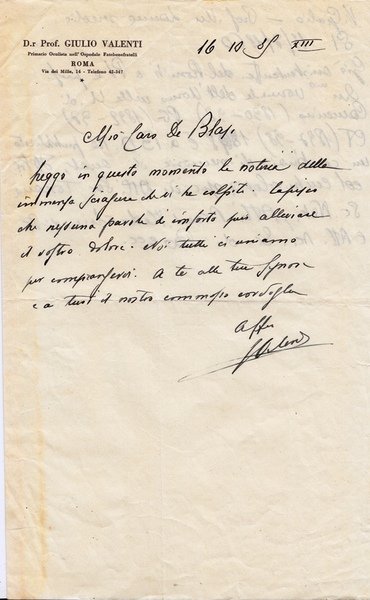 D.r Prof. GIULIO VALENTI
Primario Oculista nell'Ospedale Fatebenefratelli
ROMA
Via dei Mille, 14 - Telefono 42-547
16 10 35 XIII
Mio Caro De Blasi
leggo in questo momento la notizia della
immensa sciagura che vi ha colpito. Capisco
che nessuna parola di conforto può alleviare
il vostro dolore. Noi tutti ci uniamo
per compiangervi. A te alla tua Signora
e a tutti il nostro commosso cordoglio
Affmo
GValenti